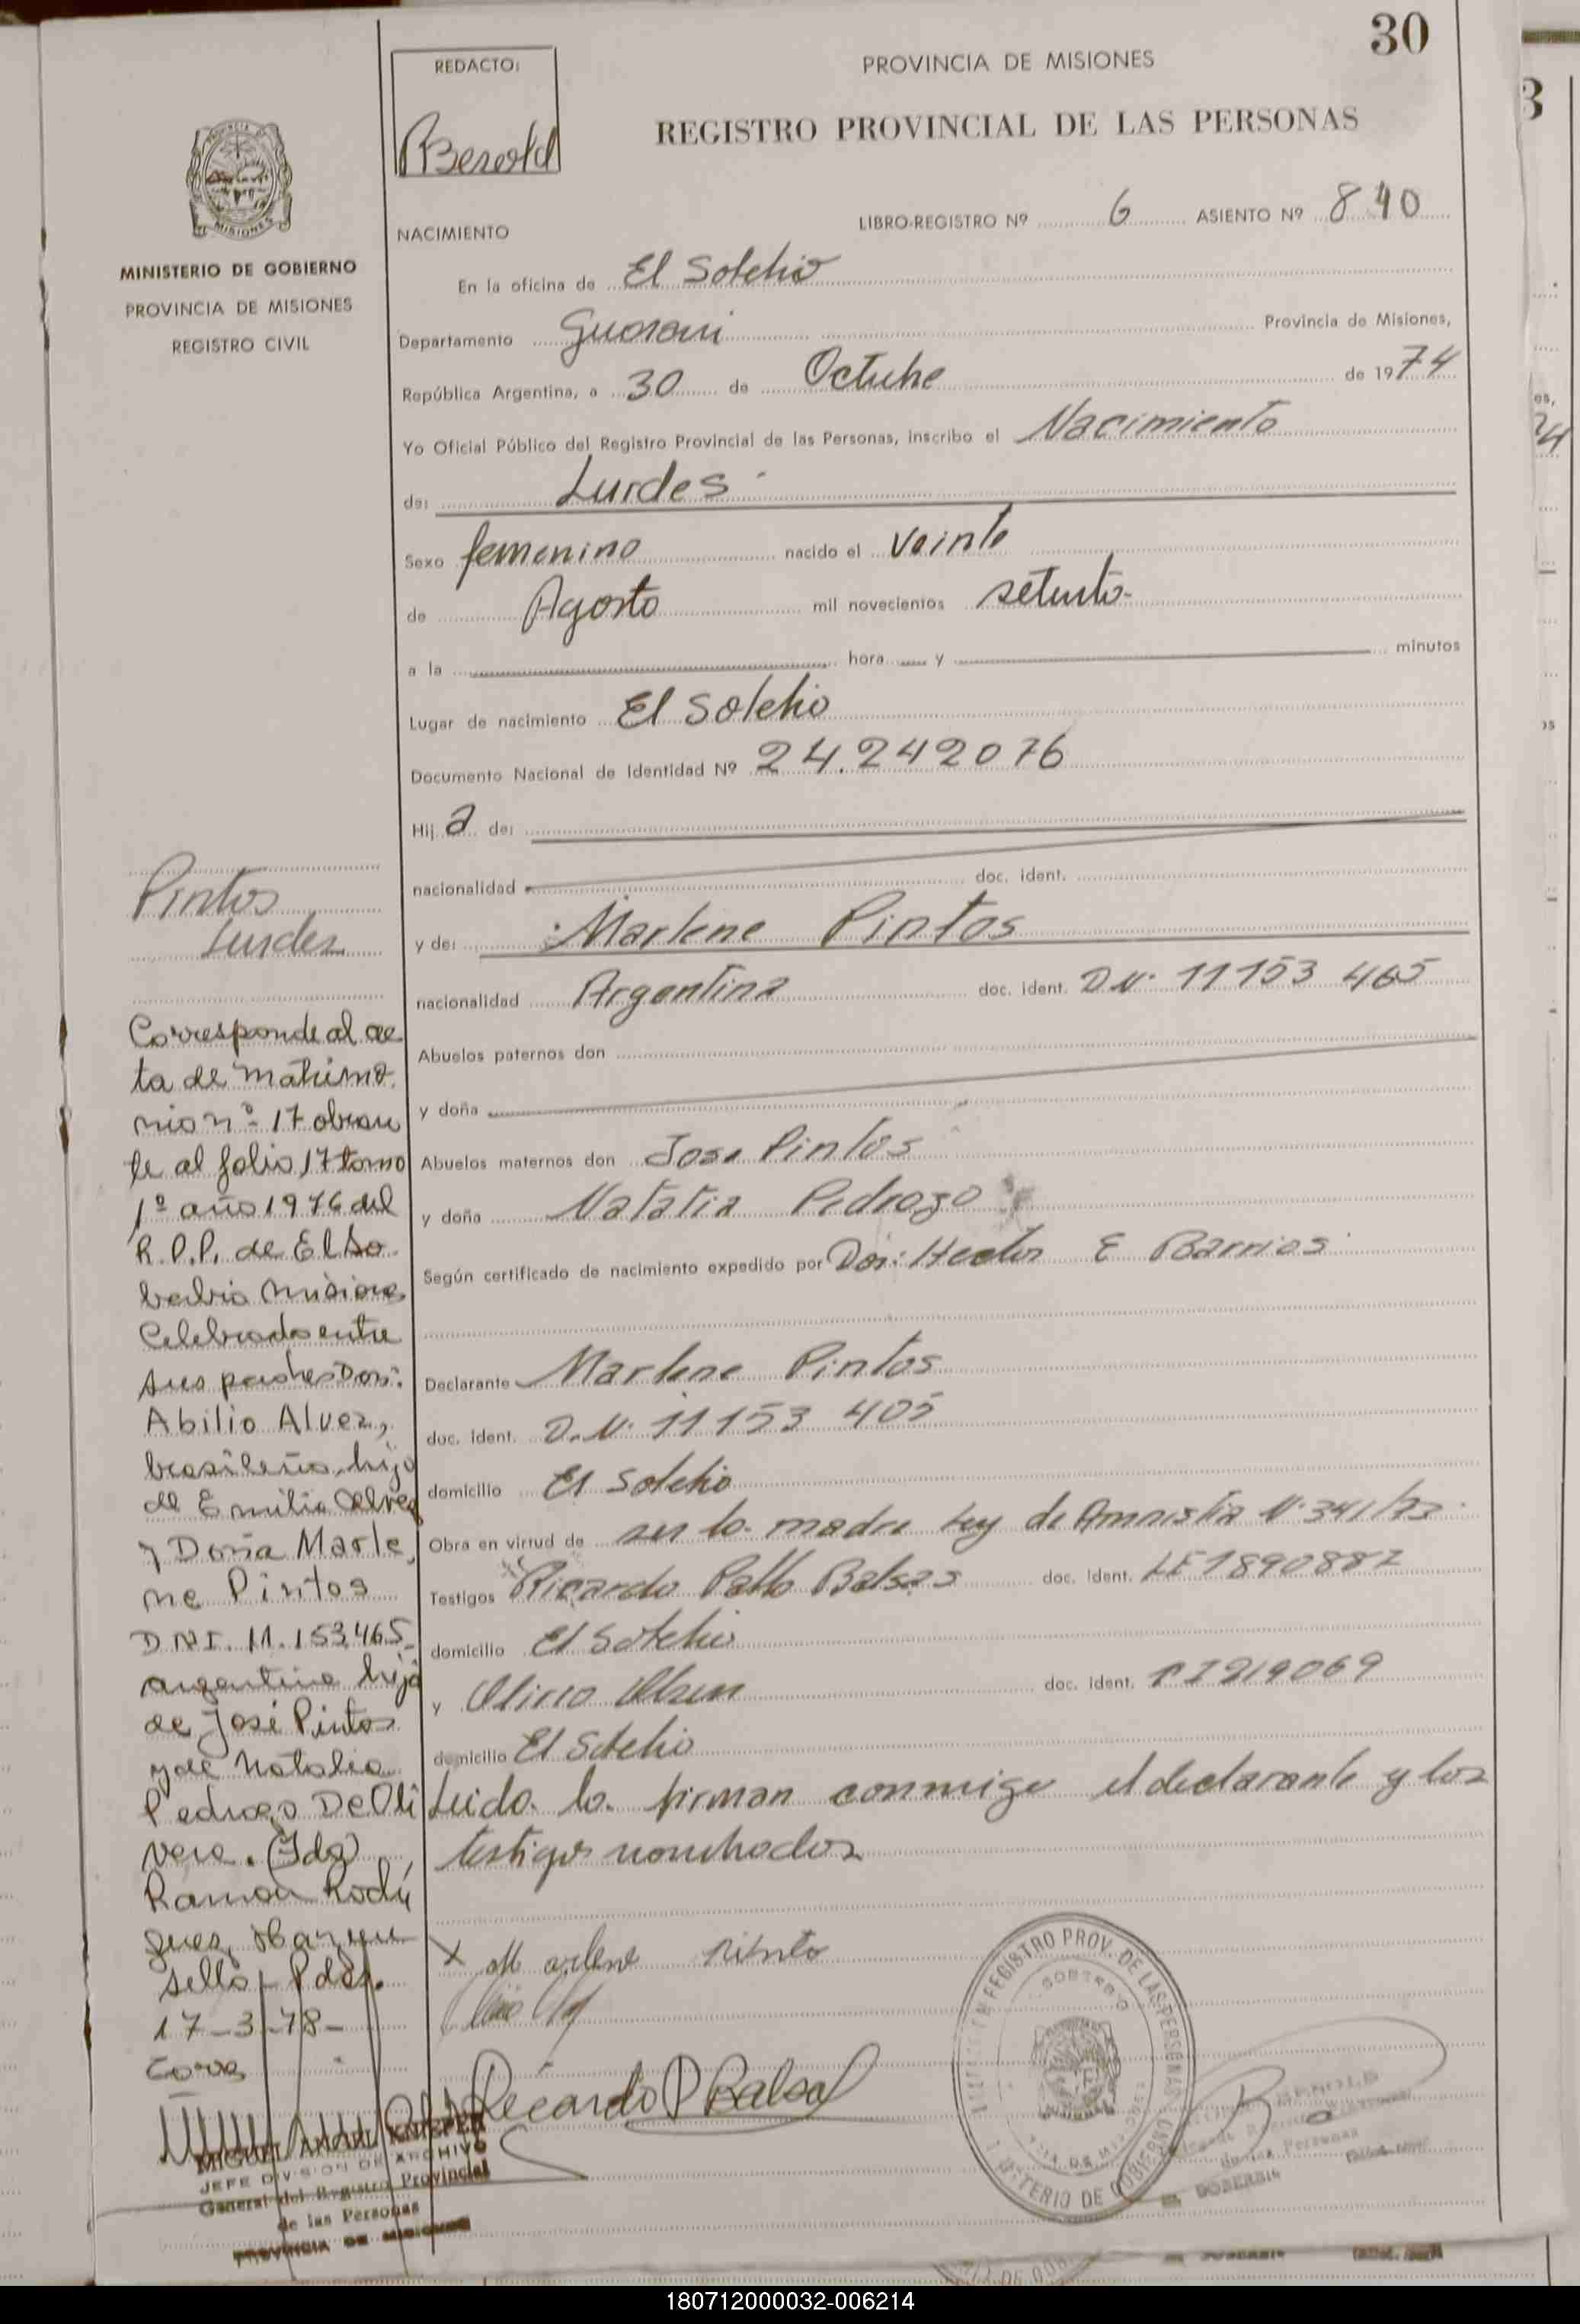 30
PROVINCIA DE MISIONES
REGISTRO PROVINCIAL DE LAS PERSONAS
REDACTO:
MISIONES
MINISTERIO DE GOBIERNO
PROVINCIA DE MISIONES
REGISTRO CIVIL
NACIMIENTO
LIBRO-REGISTRO Nº 6 ASIENTO Nº 840
En la oficina de El Soberbio
Departamento Guarani Provincia de Misiones,
República Argentina, a 30 de Octubre de 1974
Yo Oficial Público del Registro Provincial de las Personas, inscribo el Nacimiento
de: Lurdes
Sexo femenino nacido el veinte
de Agosto mil novecientos setenta
a la hora y minutos
Lugar de nacimiento El Soberbio
Documento Nacional de Identidad Nº 24.242076
Hija de:
nacionalidad doc. ident.
y de: Marlene Pintos
nacionalidad Argentina doc. ident. D.N. 11153 465
Abuelos paternos don
y doña
Abuelos maternos don Jose Pintos
y doña Natalia Pedrozo
Según certificado de nacimiento expedido por Don: Hector E Barrios
Declarante Marlene Pintos
doc. ident. D.N. 11153 405
domicilio El Soberbio
Obra en virtud de ser la madre Ley de Amnistia Nº 341/73
Testigos Ricardo Pablo Balsas doc. ident. LE 1890887
domicilio El Soberbio
y doc. ident. CI 219069
domicilio El Soberbio
Leida la firman conmigo el declarante y los
testigos nombrados
X Marlene Pinto
Ricardo P Balsa
Pintos
Lurdes
Corresponde al ac
ta de matrimo
nio nº 17 obran
te al folio 17 tomo
1º año 1976 del
R.P.P. de El So
berbio Misiones
Celebrado entre
sus padres Don:
Abilio Alvez,
brasileño, hijo
de Emilio Alvez
y Doña Marle
ne Pintos
D.N.I. 11.153465
argentina hija
de José Pintos
y de Natalia
Pedrozo De Oli
vera. (Fdo)
Ramon Rodri
guez
sello Pdas.
17-3-78-
MIGUEL ANGEL
JEFE DIVISION DE ARCHIVO
General del Registro Provincial
de las Personas
PROVINCIA DE MISIONES
REGISTRO PROV. DE LAS PERSONAS
SOBERBIO
MINISTERIO DE GOBIERNO
de las Personas
SOBERBIO
180712000032-006214